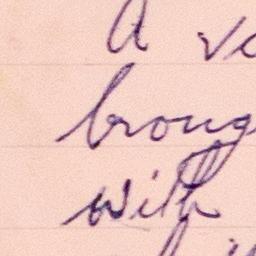 A ve
broug
with